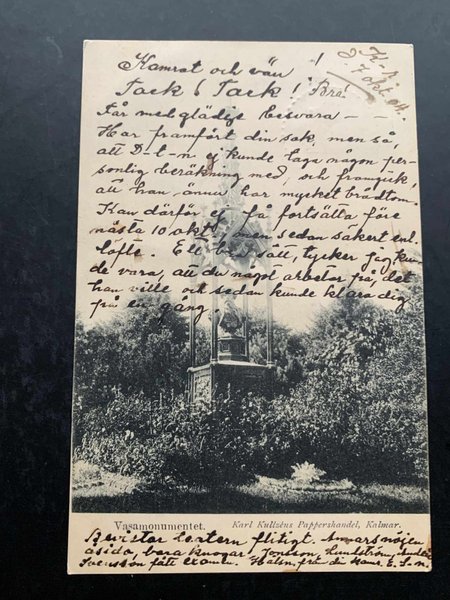 K–r
d. 7 okt 04.
Kamrat och vän !
Tack! Tack! Bra!
Får med glädje besvara – –
Har framfört din sak, men så,
att D-t-n ej kunde taga någon per-
sonlig beräkning med, och framgick,
att han ännu har mycket brådtom.
Kan därför ej få fortsätta före
nästa 10 okt. men sedan säkert enl.
löfte. Ett bra sätt, tycker jag kun
de vara, att du något arbetar på, det
han ville och sedan kunde klara dig
på en gång.
Vasamonumentet. Karl Kullzéns Pappershandel, Kalmar.
Bevistar texten flitigt. Annars nöjen
åsido, bara knogar. Jonsson, Lundström,
Svensson fått examen. Hälsn. från din kamr. E. S–n.